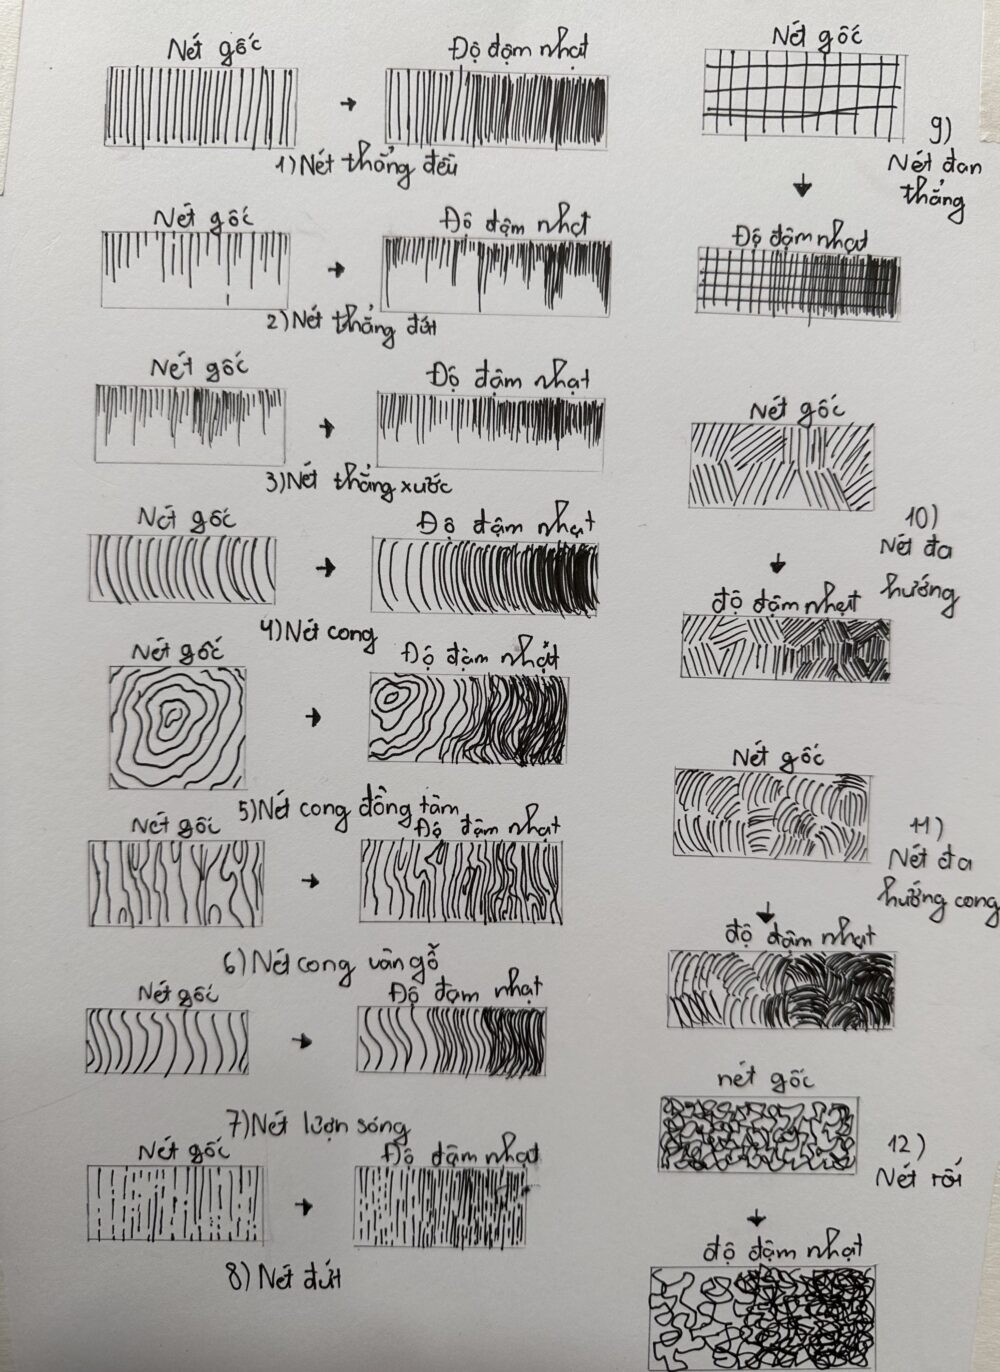 Nét gốc
Độ đậm nhạt
1) Nét thẳng đều
Nét gốc
Độ đậm nhạt
2) Nét thẳng đứt
Nét gốc
Độ đậm nhạt
3) Nét thẳng xước
Nét gốc
Độ đậm nhạt
4) Nét cong
Nét gốc
Độ đậm nhạt
5) Nét cong đồng tâm
Nét gốc
Độ đậm nhạt
6) Nét cong vân gỗ
Nét gốc
Độ đậm nhạt
7) Nét lượn sóng
Nét gốc
Độ đậm nhạt
8) Nét đứt
Nét gốc
9)
Nét đan
thẳng
Độ đậm nhạt
Nét gốc
10)
Nét đa
hướng
độ đậm nhạt
Nét gốc
11)
Nét đa
hướng cong
độ đậm nhạt
nét gốc
12)
Nét rối
độ đậm nhạt